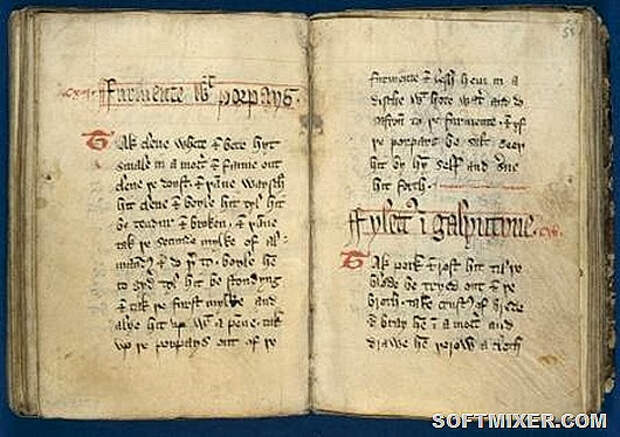 .cxvj. ffurmente wt porpays.
Tak clene whete & bete hyt
smale in a morter & fanne out
clene þe doust. & þane waysch
hit clene & boyle hit tyl hit
be tendur & broken. & þane
tak þe secunde mylke of al-
maundys & do þerto. boyle hem
to gydur tyl hit be stondyng
& tak þe furst mylke and
alye hit up wt a penne. tak
up þe porpays out of þe
furmente & lesh hem in a
disshe wt hote water. and do
safron to þe furmente. & yf
þe porpays be salt seeþ
hit by hym self and serve
hit forth.
ffylettes in galyntyne. .cxvij.
Tak pork & rost hit tyl þe
blode be tryed out & þe
broth. take crustes of brede
& bray hem in a morter and
drawe hem þorow a cloth
55
SOFTMIXER.COM